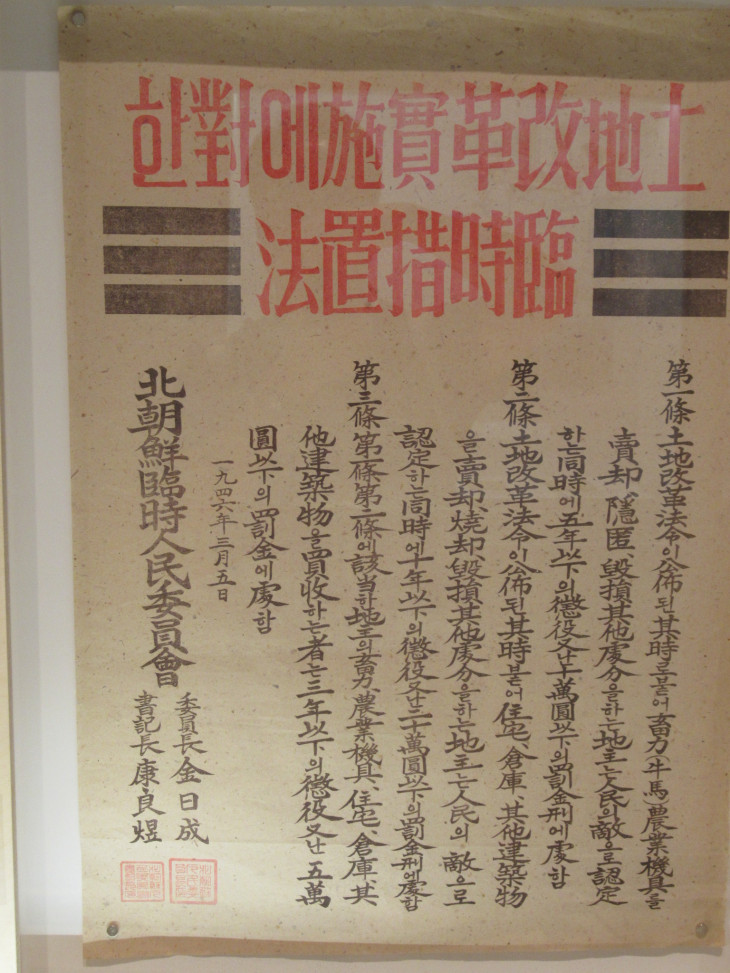 土地改革實施에對한
臨時措置法
第一條 土地改革法令이公佈된其時로붙어畜力(牛馬)農業機具를
賣却、隱匿、毀損其他處分을하는地主는人民의敵으로認定
한는同時에五年以下의懲役又난十萬圓以下의罰金刑에處함
第二條 土地改革法令이公佈된其時붙어住宅、倉庫、其他建築物
을賣却、燒却、毀損其他處分을하는地主는人民의敵으로
認定한는同時에十年以下의懲役又난二十萬圓以下의罰金刑에處함
第三條 第一條第二條에該当한地主의畜力、農業機具、住宅、倉庫其
他建築物을買收하는者는三年以下의懲役又난五萬
圓以下의罰金에處함
一九四六年三月五日
北朝鮮臨時人民委員會
委員長 金日成
書記長 康良煜